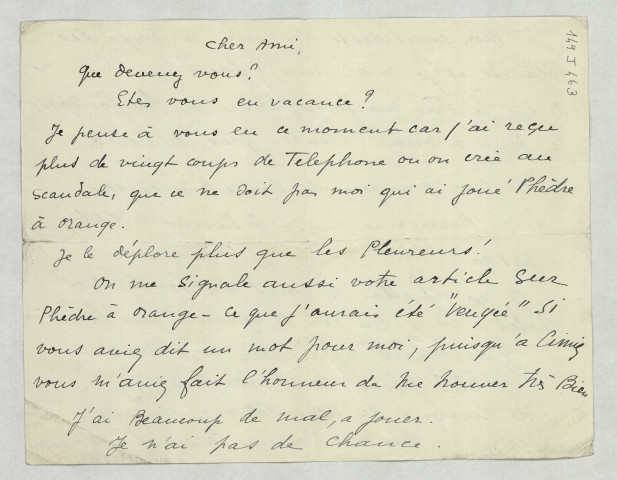 Cher Ami,
149 J 463
que devenez vous?
Etes vous en vacance?
Je pense à vous en ce moment car j'ai reçu
plus de vingt coups de Telephone ou on crie au
scandale, que ce ne soit pas moi qui ai joué Phèdre
à Orange.
Je le déplore plus que les Pleureurs!
On me signale aussi votre article sur
Phèdre à Orange - ce que j'aurais été "Vengée" si
vous aviez dit un mot pour moi, puisqu'à Cimiez
vous m'aviez fait l'honneur de me trouver très Bien
J'ai Beaucoup de mal, a jouer.
Je n'ai pas de chance.